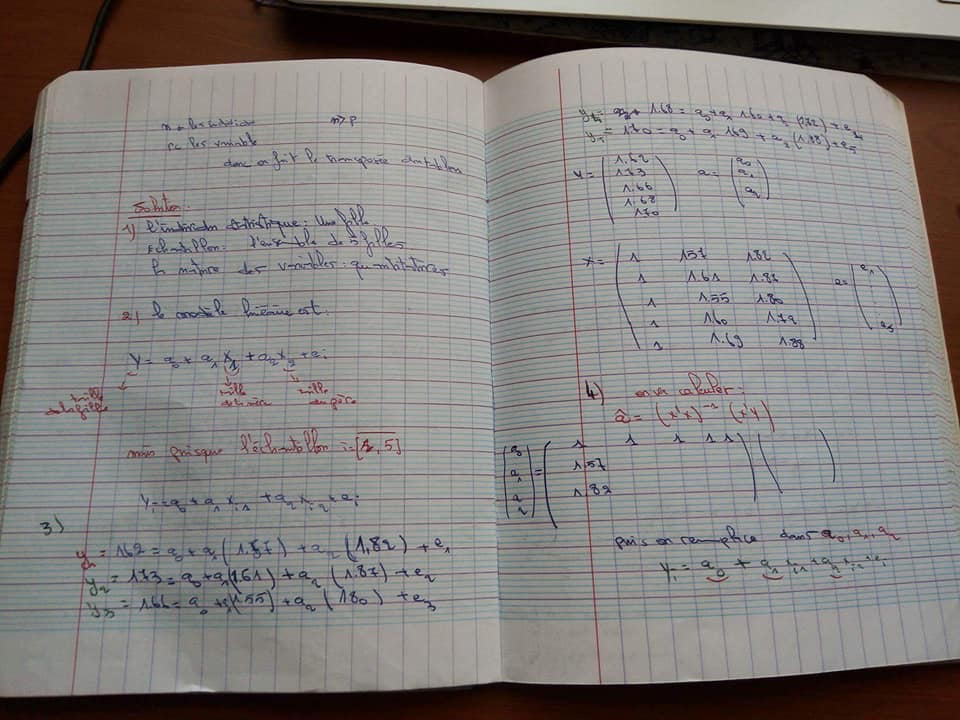 n les individus n > p
les variable
donc on fait le transposée du tableau
Solution:
1) l'individu statistique: Une fille
échantillon: l'ensemble de 5 filles
la nature des variables: quantitatives
2) le modèle linéaire est:
Y = a₀ + a₁x₁ + a₂x₂ + eᵢ
taille de la fille taille de la mère taille du père
mais puisque l'échantillon i = [1, 5]
Yᵢ = a₀ + a₁xᵢ₁ + a₂xᵢ₂ + eᵢ
3)
y₁ = 1.62 = a₀ + a₁(1.57) + a₂(1.82) + e₁
y₂ = 1.73 = a₀ + a₁(1.61) + a₂(1.87) + e₂
y₃ = 1.66 = a₀ + a₁(1.55) + a₂(1.80) + e₃
y₄ = 1.68 = a₀ + a₁ 1.60 + a₂ (1.72) + e₄
y₅ = 1.70 = a₀ + a₁ 1.69 + a₂ (1.88) + e₅
Y = (1.62 1.73 1.66 1.68 1.70) a = (a₀ a₁ a₂)
X = (1 1.57 1.82
1 1.61 1.87
1 1.55 1.80
1 1.60 1.72
1 1.69 1.88) e = (e₁ . . . e₅)
4) on va calculer:
â = (x'x)⁻¹ (x'Y)
(a₀ a₁ a₂) = (1 1 1 1 1
1.57
1.82) ( )
puis on remplace dans a₀, a₁, a₂
Yᵢ = a₀ + a₁xᵢ₁ + a₂xᵢ₂ + eᵢ